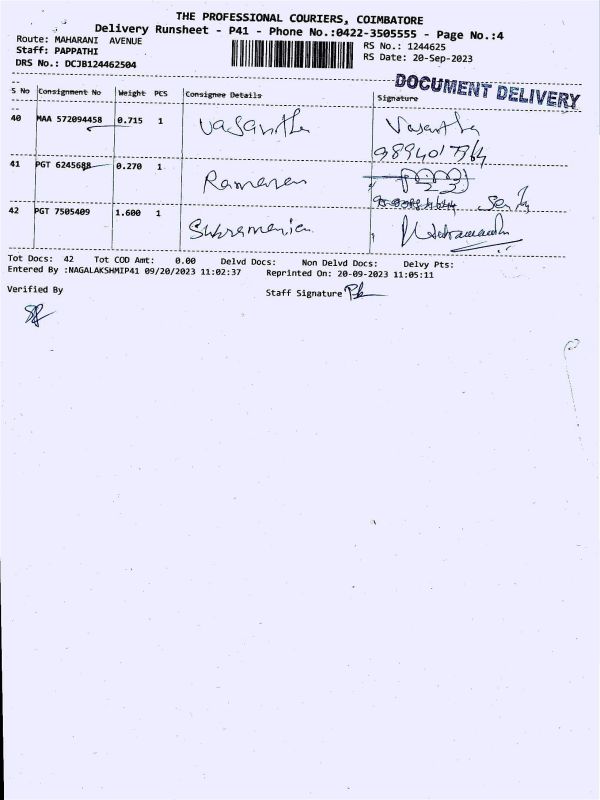 THE PROFESSIONAL COURIERS, COIMBATORE
Delivery Runsheet - P41 - Phone No.:0422-3505555 - Page No.:4
Route: MAHARANI AVENUE
RS No.: 1244625
Staff: PAPPATHI
RS Date: 20-Sep-2023
DRS No.: DCJB124462504
DOCUMENT DELIVERY
S No Consignment No Weight PCS Consignee Details Signature
40 MAA 572094458 0.715 1 Vasantha Vasantha
41 PGT 6245688 0.270 1 Ramanan
42 PGT 7505409 1.600 1 Subramanian
Tot Docs: 42 Tot COD Amt: 0.00 Delvd Docs: Non Delvd Docs: Delvy Pts:
Entered By :NAGALAKSHMIP41 09/20/2023 11:02:37 Reprinted On: 20-09-2023 11:05:11
Verified By Staff Signature